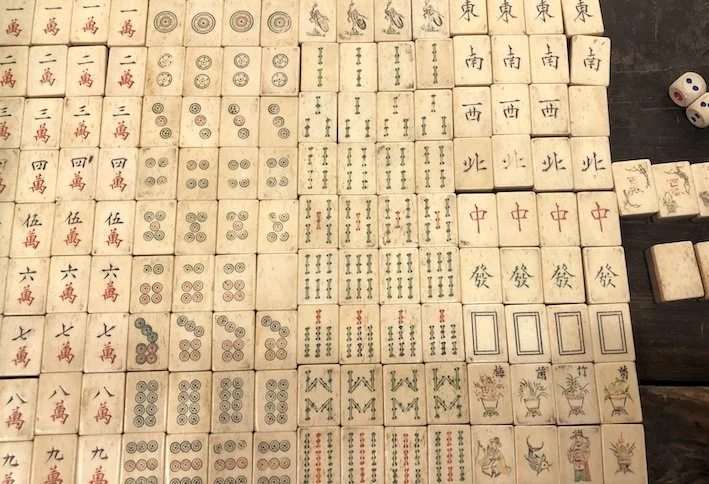 一 一 一 一 東 東 東 東
萬 萬 萬 萬
二 二 二 二 南 南 南 南
萬 萬 萬 萬
三 三 三 三 西 西 西
萬 萬 萬 萬
四 四 四 北 北 北 北
萬 萬 萬
伍 伍 伍 中 中 中 中
萬 萬 萬
六 六 六 發 發 發 發
萬 萬 萬
七 七 七
萬 萬 萬
八 八 八 梅 蘭 竹 菊
萬 萬 萬
九 九 九
萬 萬 萬